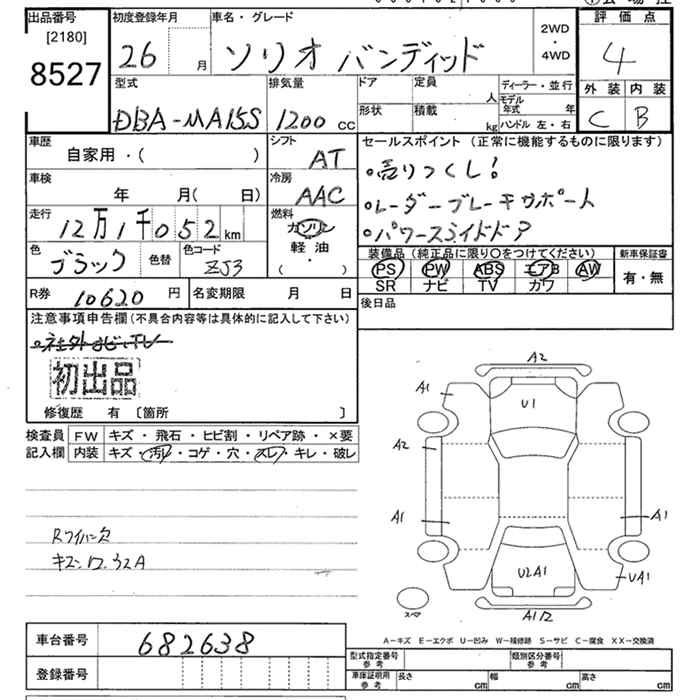 出品番号
[2180]
8527
初度登録年月
26 月
車名・グレード
ソリオ バンディッド
2WD
・
4WD
評価点
4
外装 内装
C B
型式
DBA-MA15S
排気量
1200 cc
ドア
定員
人
形状
積載
kg
ディーラー・並行
モデル年式 年
ハンドル 左・右
車歴
自家用・( )
シフト
AT
セールスポイント (正常に機能するものに限ります)
・売りつくし!
・レーダーブレーキサポート
・パワースライドドア
車検
年 月( 日)
冷房
AAC
走行
12万1千052km
燃料
ガソリン
軽油
・
( )
色
ブラック
色替
色コード
ZJ3
装備品 (純正品に限り〇をつけてください)
PS PW ABS エアB AW
SR ナビ TV カワ
新車保証書
有・無
R券
10620 円
名変期限 月 日
後日品
注意事項申告欄(不具合内容等は具体的に記入して下さい)
・社外ナビ・TV
初出品
修復歴 有 〔箇所 〕
検査員記入欄
FW キズ・飛石・ヒビ割・リペア跡・×要
内装 キズ・汚レ・コゲ・穴・スレ・キレ・破レ
Rワイパー欠
A2
A1
U1
A2
A1
A1
U2A1
UA1
スペア
A1/2
A-キズ E-エクボ U-凹み W-補修跡 S-サビ C-腐食 XX-交換済
車台番号
682638
登録番号
型式指定番号
参考
類別区分番号
参考
車庫証明用
参考
長さ cm
幅 cm
高さ cm